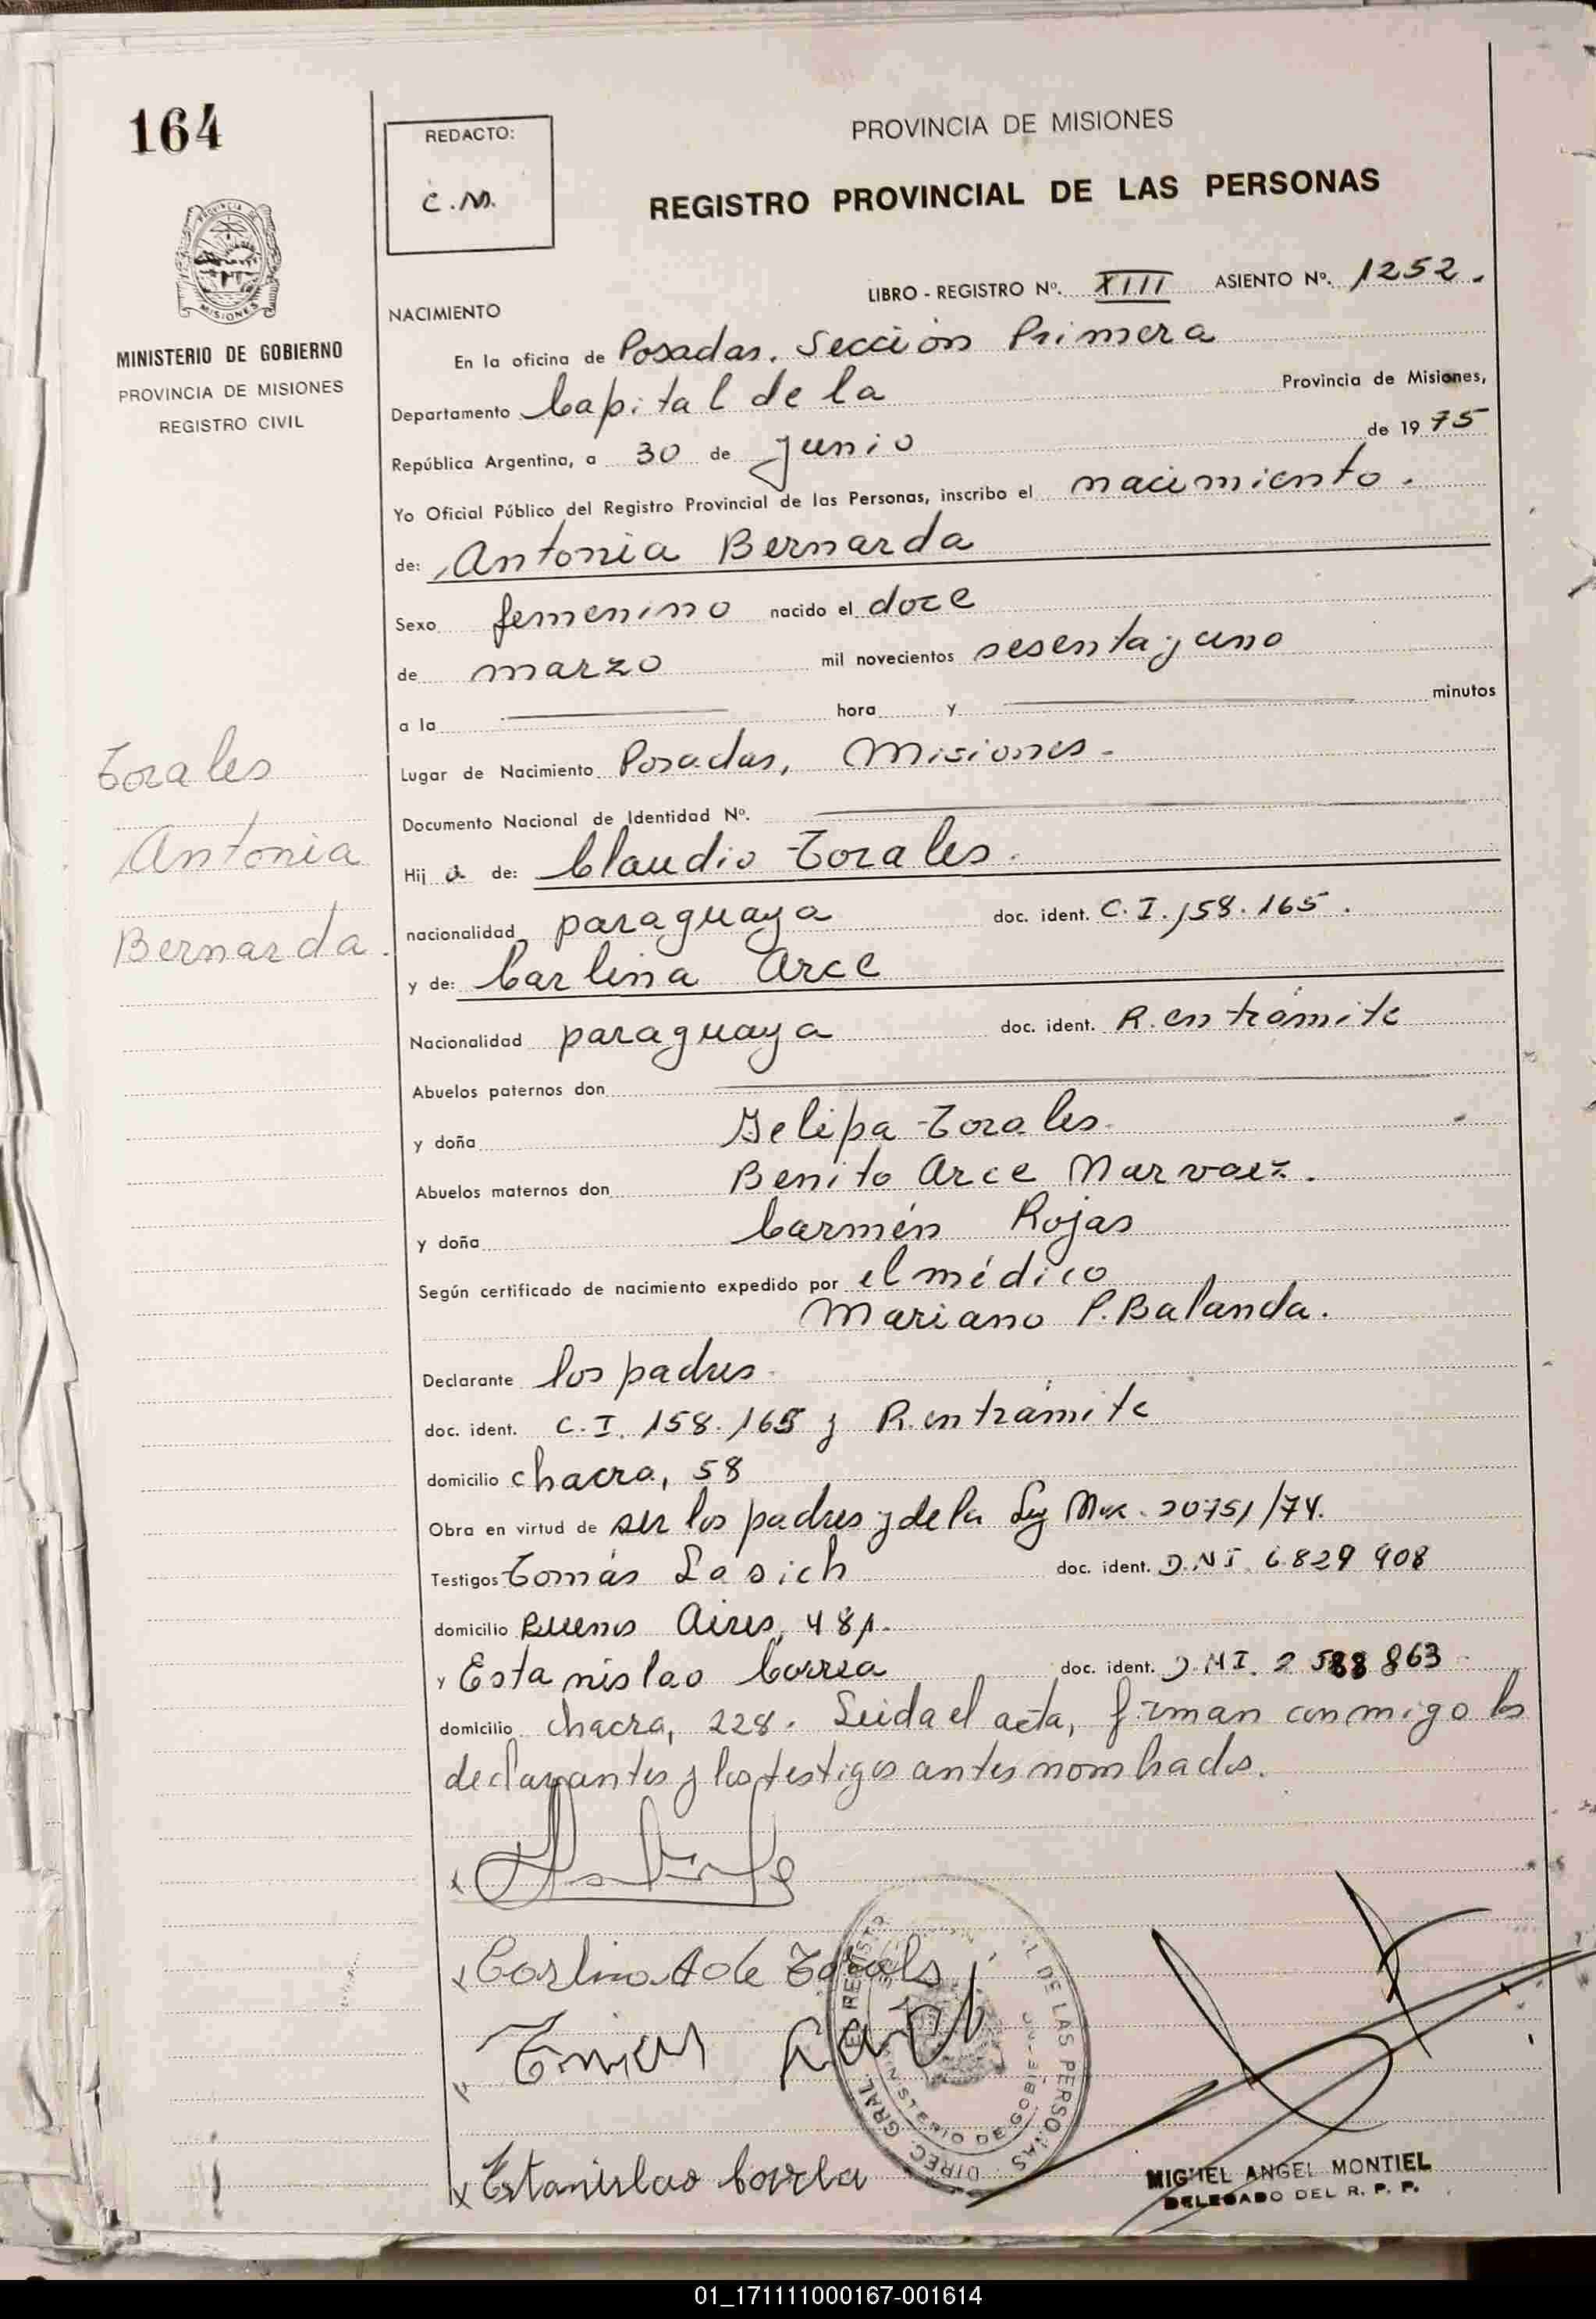 164
REDACTO:
C.M.
PROVINCIA DE MISIONES
REGISTRO PROVINCIAL DE LAS PERSONAS
PROVINCIA DE
MISIONES
MINISTERIO DE GOBIERNO
PROVINCIA DE MISIONES
REGISTRO CIVIL
LIBRO - REGISTRO Nº. XIII ASIENTO Nº. 1252.
NACIMIENTO
En la oficina de Posadas. Sección Primera
Departamento Capital de la Provincia de Misiones,
República Argentina, a 30 de junio de 1975
Yo Oficial Público del Registro Provincial de las Personas, inscribo el nacimiento.
de: Antonia Bernarda
Sexo femenino nacido el doce
de marzo mil novecientos sesenta y uno
a la hora y minutos
Lugar de Nacimiento Posadas, Misiones-
Documento Nacional de Identidad Nº.
Torales
Antonia
Bernarda.
Hij a de: Claudio Torales.
nacionalidad paraguaya doc. ident. C.I. 158.165.
y de: Carlina Arce
Nacionalidad paraguaya doc. ident. R. en trámite
Abuelos paternos don
y doña Felipa Torales.
Abuelos maternos don Benito Arce Narvaez.
y doña Carmén Rojas
Según certificado de nacimiento expedido por el médico
Mariano P. Balanda.
Declarante los padres-
doc. ident. C.I. 158.165 y R. en trámite
domicilio chacra, 58
Obra en virtud de ser los padres y de la Ley 20751/74.
Testigos Tomás Lasich doc. ident. D.N.I. 6.829 908
domicilio Buenos Aires, 481.
y Estanislao Correa doc. ident. D.N.I. 2 588 863
domicilio chacra, 228. Leida el acta, firman conmigo los
declarantes y los testigos antes nombrados.
x Carlina A de Torales
x Estanislao Correa
DIREC. GRAL. REGISTRO DE LAS PERSONAS
MINISTERIO DE GOBIERNO
MIGUEL ANGEL MONTIEL
DELEGADO DEL R. P. P.
01_171111000167-001614